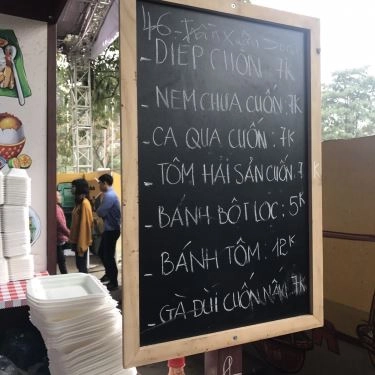 46-Trần Xuân Soạn
- DIẾP CUỐN: 7K
- NEM CHUA CUỐN: 7K
- CA QUA CUỐN: 7K
- TÔM HẢI SẢN CUỐN: 7K
- BÁNH BỘT LỌC: 5K
- BÁNH TÔM: 12K
- GÀ DÙI CUỐN NẤM 7K